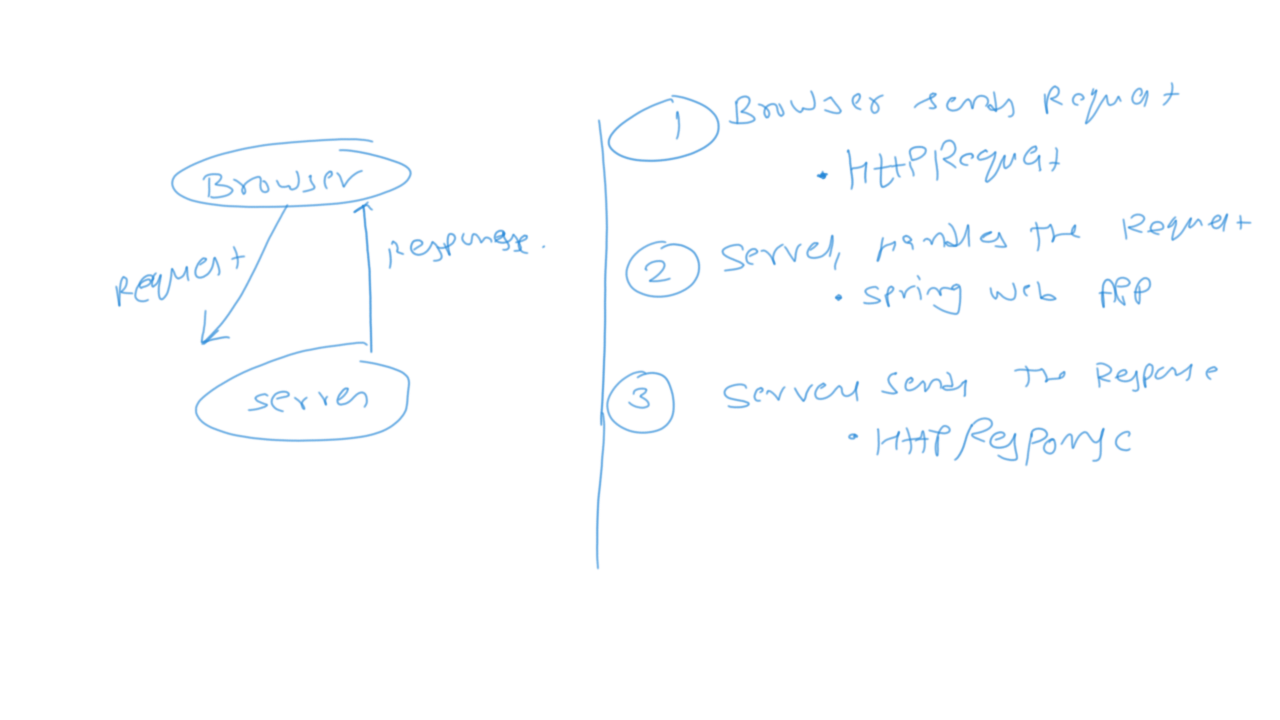 Browser
Request
Response.
Server
1 Browser sends Request
• HTTPRequest
2 Server, handles the Request
• spring web App
3 Server sends the Response
• HTTPResponse